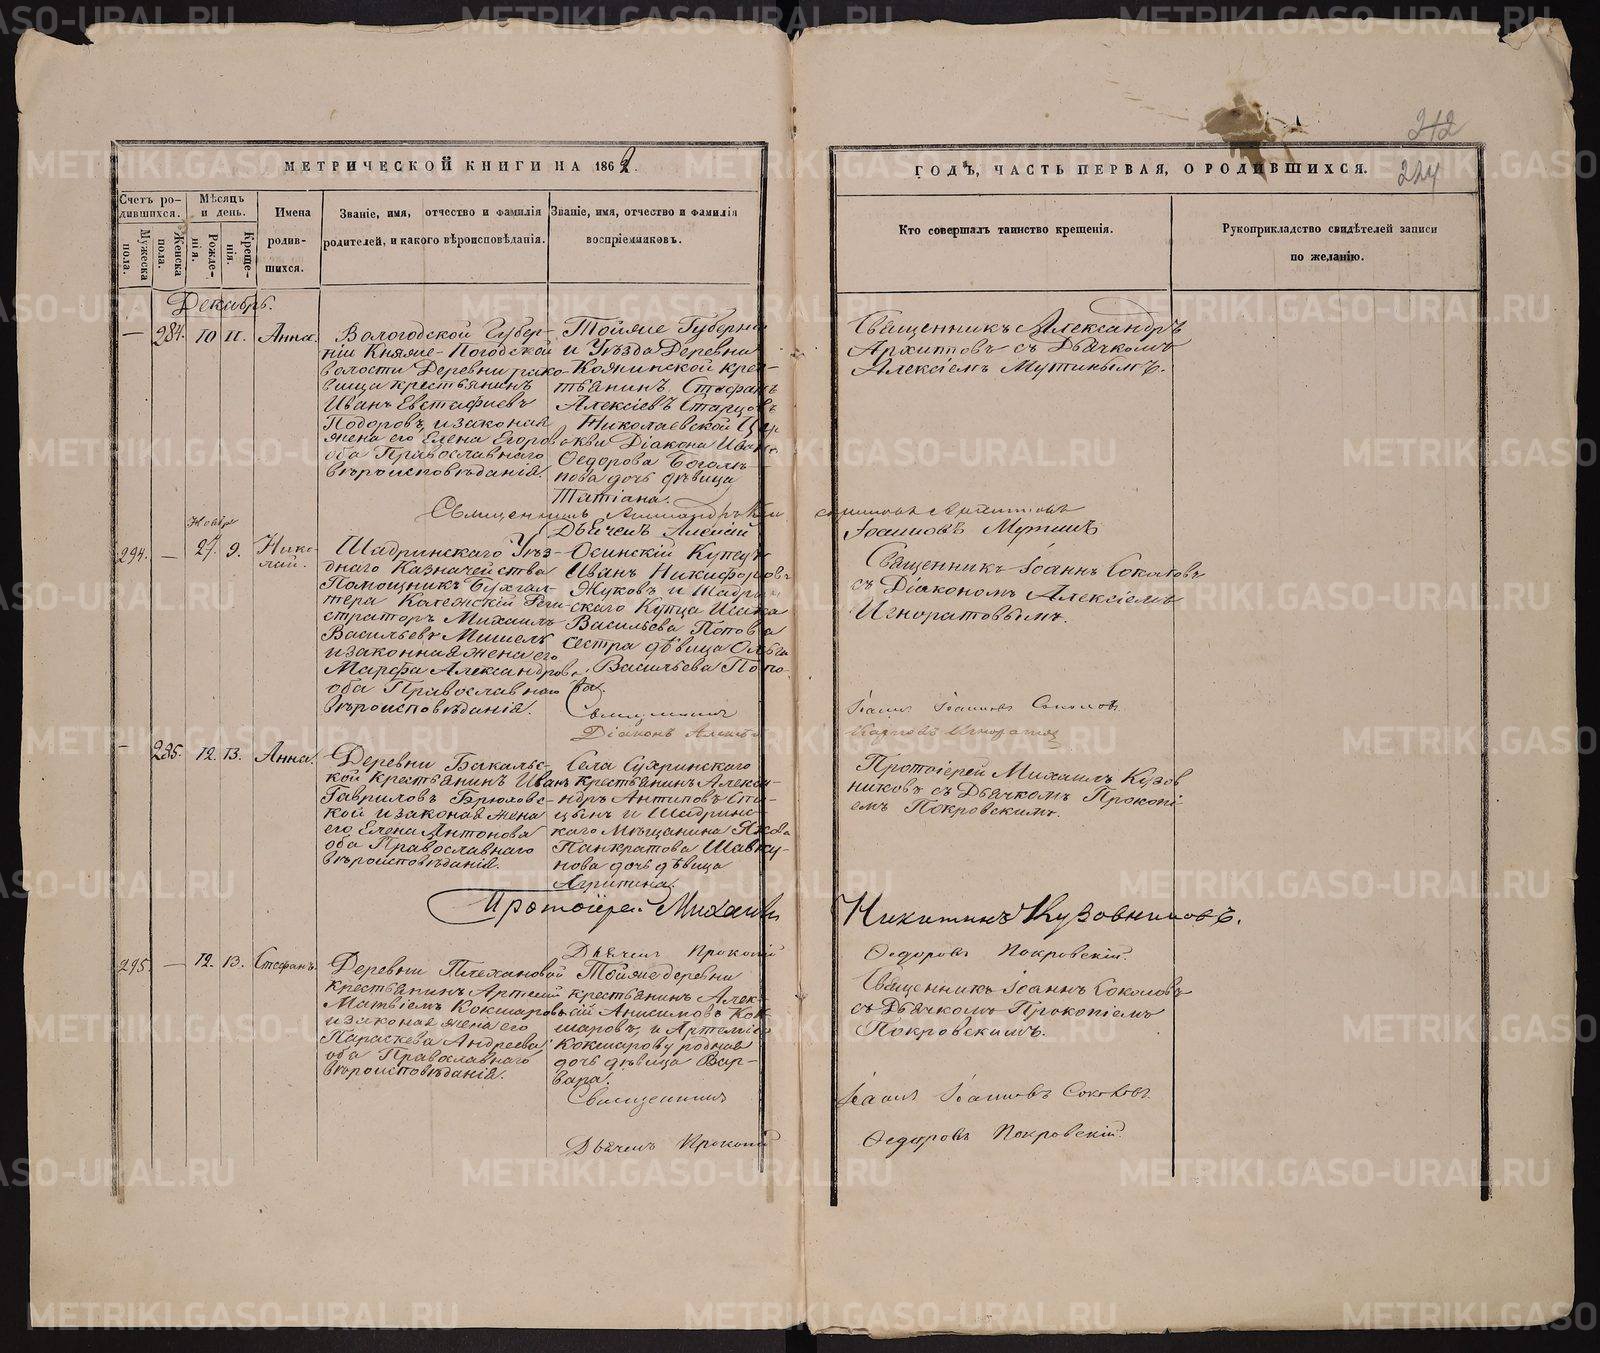 МЕТРИЧЕСКОЙ КНИГИ НА 1862.
Счетъ ро-
дившихся.
Мужеска пола.
Женска пола.
Мѣсяцъ
и день.
Рожде-
нія.
Креще-
нія.
Имена
родив-
шихся.
Званіе, имя, отчество и фамилія
родителей, и какого вѣроисповѣданія.
Званіе, имя, отчество и фамилія
воспріемниковъ.
Декабрь.
— 284. 10 11. Анна.
Вологодской Губер-
ніи Княже-Погодской
волости Деревни
крестьянинъ
Иванъ Евстафіевъ
Подоровъ, и законая
жена его Елена Егоров
оба Православнаго
вѣроисповѣданія.
Тойже Губерніи
и Уѣзда Деревни
крес-
тьянинъ Стефанъ
Алексіевъ Старцовъ
Николаевской Цер
кви Діакона Ивана
Ѳедорова Боголѣ
пова дочь дѣвица
Татіана.
Священникъ Александръ
Дьячекъ Алексій
294. — Ноября 27. 9. Нико-
лай.
Шадринскаго Уѣз-
днаго Казначейства
Помощникъ Бухгал-
тера Колежскій Реги-
страторъ Михаилъ
Васильевъ
и законная жена его
Марфа Александрова
оба Православнаго
вѣроисповѣданія.
Осинскій Купецъ
Иванъ Никифоровъ
Жуковъ, и Шадрин
скаго Купца Исака
Васильева Попова
сестра дѣвица Ольга
Васильева Попо-
ва.
Священникъ
Діаконъ Алексѣй
— 285. 12. 13. Анна.
Деревни Бакальс-
кой Крестьянинъ Иванъ
Гавриловъ Брюховс-
кой и законая жена
его Елена Антонова
оба Православнаго
вѣроисповѣданія.
Села Сухринскаго
крестьянинъ Алекса-
ндръ Антиповъ
и Шадринс
каго Мѣщанина Якова
Панкратова Шавку-
нова дочь дѣвица
Агрипина.
Протоіерей Михаилъ
Дьячекъ Прокопій
295. — 12. 13. Стефанъ.
Деревни Плехановой
крестьянинъ Артемій
Матвіевъ Кокшаровъ
и законая жена его
Параскева Андреева
оба Православнаго
вѣроисповѣданія.
Тойже деревни
крестьянинъ Алек-
сій Анисимовъ Кок
шаровъ, и Артемію
Кокшарову родная
дочь дѣвица Вар-
вара.
Священникъ
Дьячекъ Прокопій
212
224
ГОДЪ, ЧАСТЬ ПЕРВАЯ, О РОДИВШИХСЯ.
Кто совершалъ таинство крещенія.
Рукоприкладство свидѣтелей записи
по желанію.
Священникъ Александръ
Архиповъ съ Дьячкомъ
Алексіемъ Мутинымъ.
Іоанновъ Мутинъ
Священникъ Іоаннъ Соколовъ
съ Діакономъ Алексіемъ
Игноратовымъ.
Іоаннъ Іоанновъ Соколовъ.
Протоіерей Михаилъ Кузов
никовъ съ Дьячкомъ Прокопі-
емъ Покровскимъ.
Никитинъ Кузовниковъ.
Ѳедоровъ Покровскій.
Священникъ Іоаннъ Соколовъ
съ Дьячкомъ Прокопіемъ
Покровскимъ.
Іоаннъ Іоанновъ Соколовъ.
Ѳедоровъ Покровскій.
METRIKI.GASO-URAL.RU